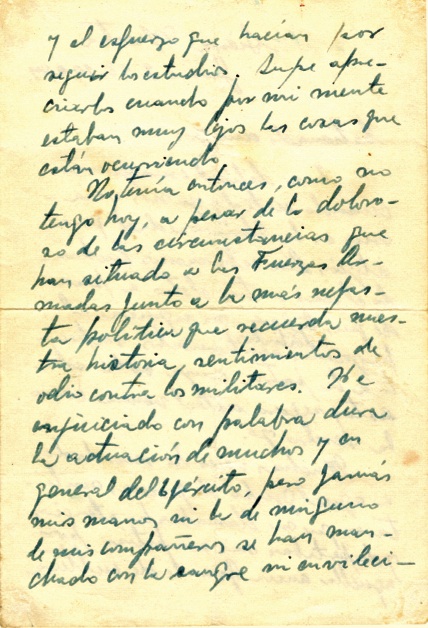 y el esfuerzo que hacían por
seguir los estudios. Supe apre-
ciarlos cuando por mi mente
estaban muy lejos las cosas que
están ocurriendo.
No tenía entonces, como no
tengo hoy, a pesar de lo doloro-
so de las circunstancias que
han situado a las Fuerzas Ar-
madas junto a la más nefas-
ta política que recuerda nues-
tra historia, sentimientos de
odio contra los militares. He
enjuiciado con palabra dura
la actuación de muchos y en
general del Ejército, pero jamás
mis manos ni la de ninguno
de mis compañeros se han man-
chado con la sangre ni envileci-